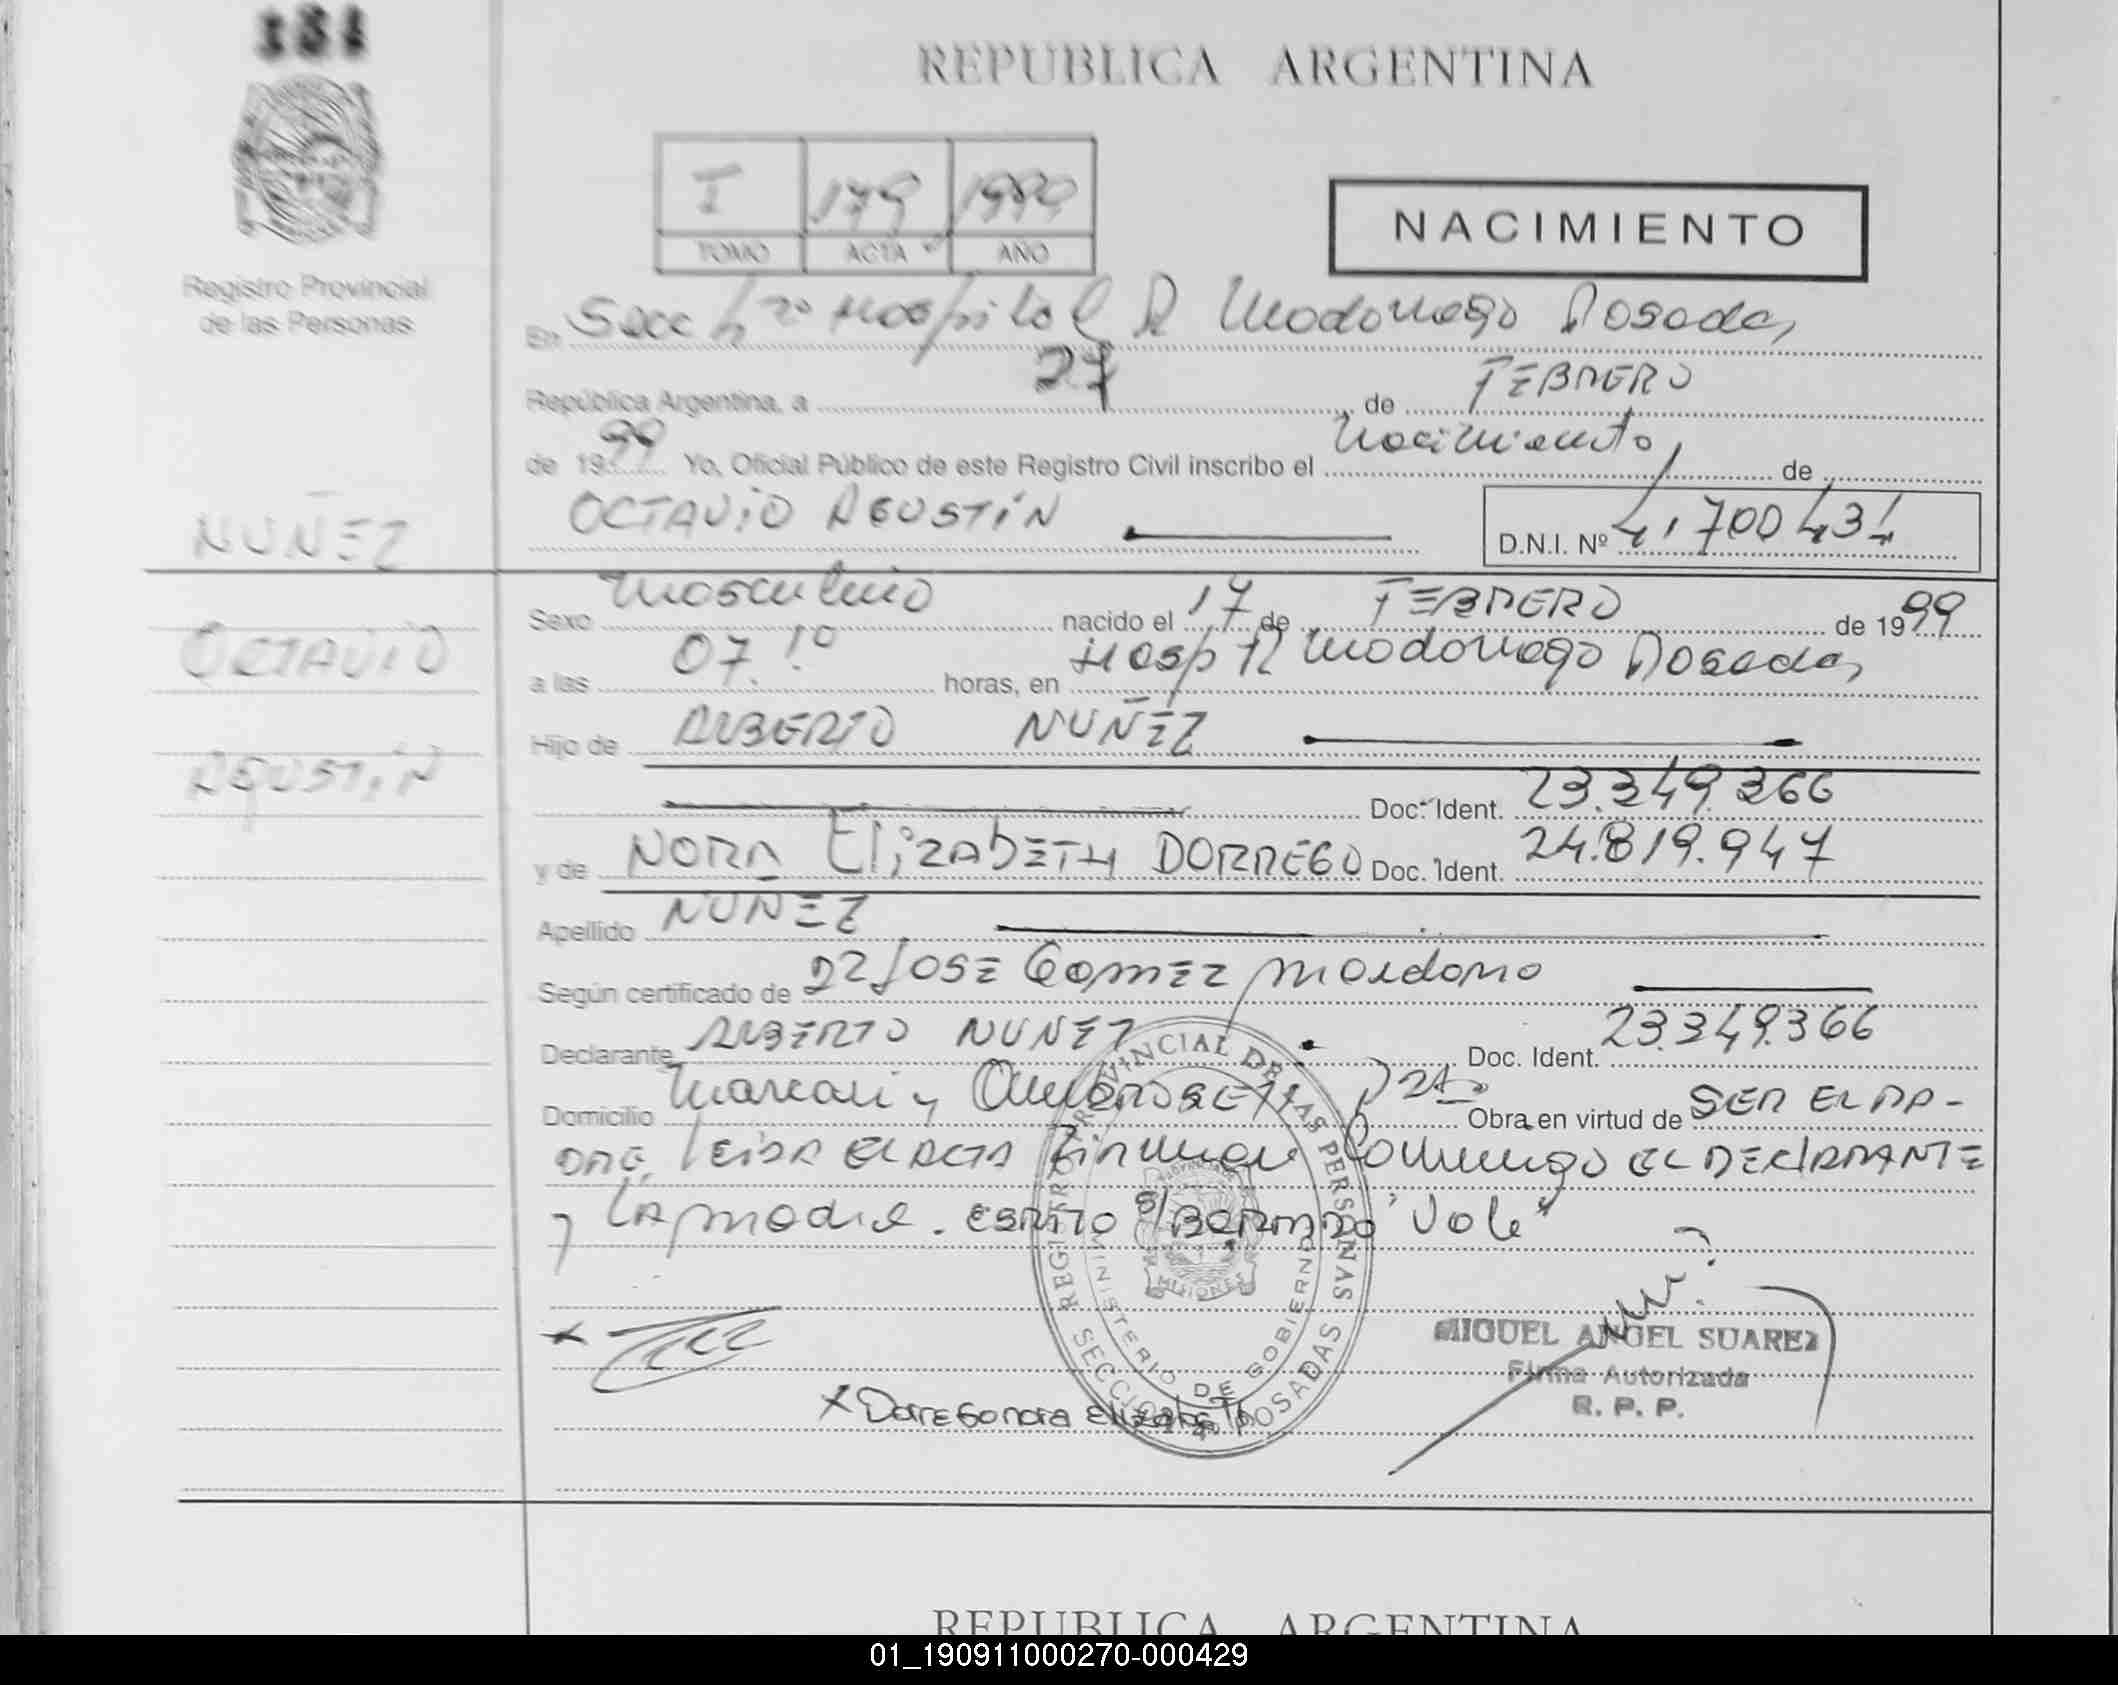 REPUBLICA ARGENTINA
I 179 1999
TOMO ACTA AÑO
NACIMIENTO
Registro Provincial
de las Personas
En Secc 1/2º Hospital R Madariaga Posadas,
República Argentina, a 27 de FEBRERO
de 1999 Yo, Oficial Público de este Registro Civil inscribo el Nacimiento, de
OCTAVIO AGUSTÍN D.N.I. Nº
NUÑEZ
OCTAVIO
AGUSTÍN
Sexo Masculino nacido el 17 de FEBRERO de 1999
a las 07.10 horas, en Hosp R Madariaga Posadas,
Hijo de ALBERTO NUÑEZ
Doc. Ident. 23.349.366
y de NORA ElizABETH DORREGO Doc. Ident. 24.819.947
Apellido NUÑEZ
Según certificado de Dr JOSE GOMEZ Maidana
Declarante ALBERTO NUÑEZ Doc. Ident. 23.349.366
Domicilio Marconi y AMBROSETTI Obra en virtud de SER EL PA-
DRE, leida EL ACTA Firman Conmigo EL DECLARANTE
y LA madre. ESCRITO S/ "Vale"
REGISTRO PROVINCIAL DE LAS PERSONAS
MINISTERIO DE GOBIERNO
MISIONES
SECCION POSADAS
MIGUEL ANGEL SUAREZ
Firma Autorizada
R. P. P.
x Dorrego nora Elizabeth
REPUBLICA ARGENTINA
01_190911000270-000429